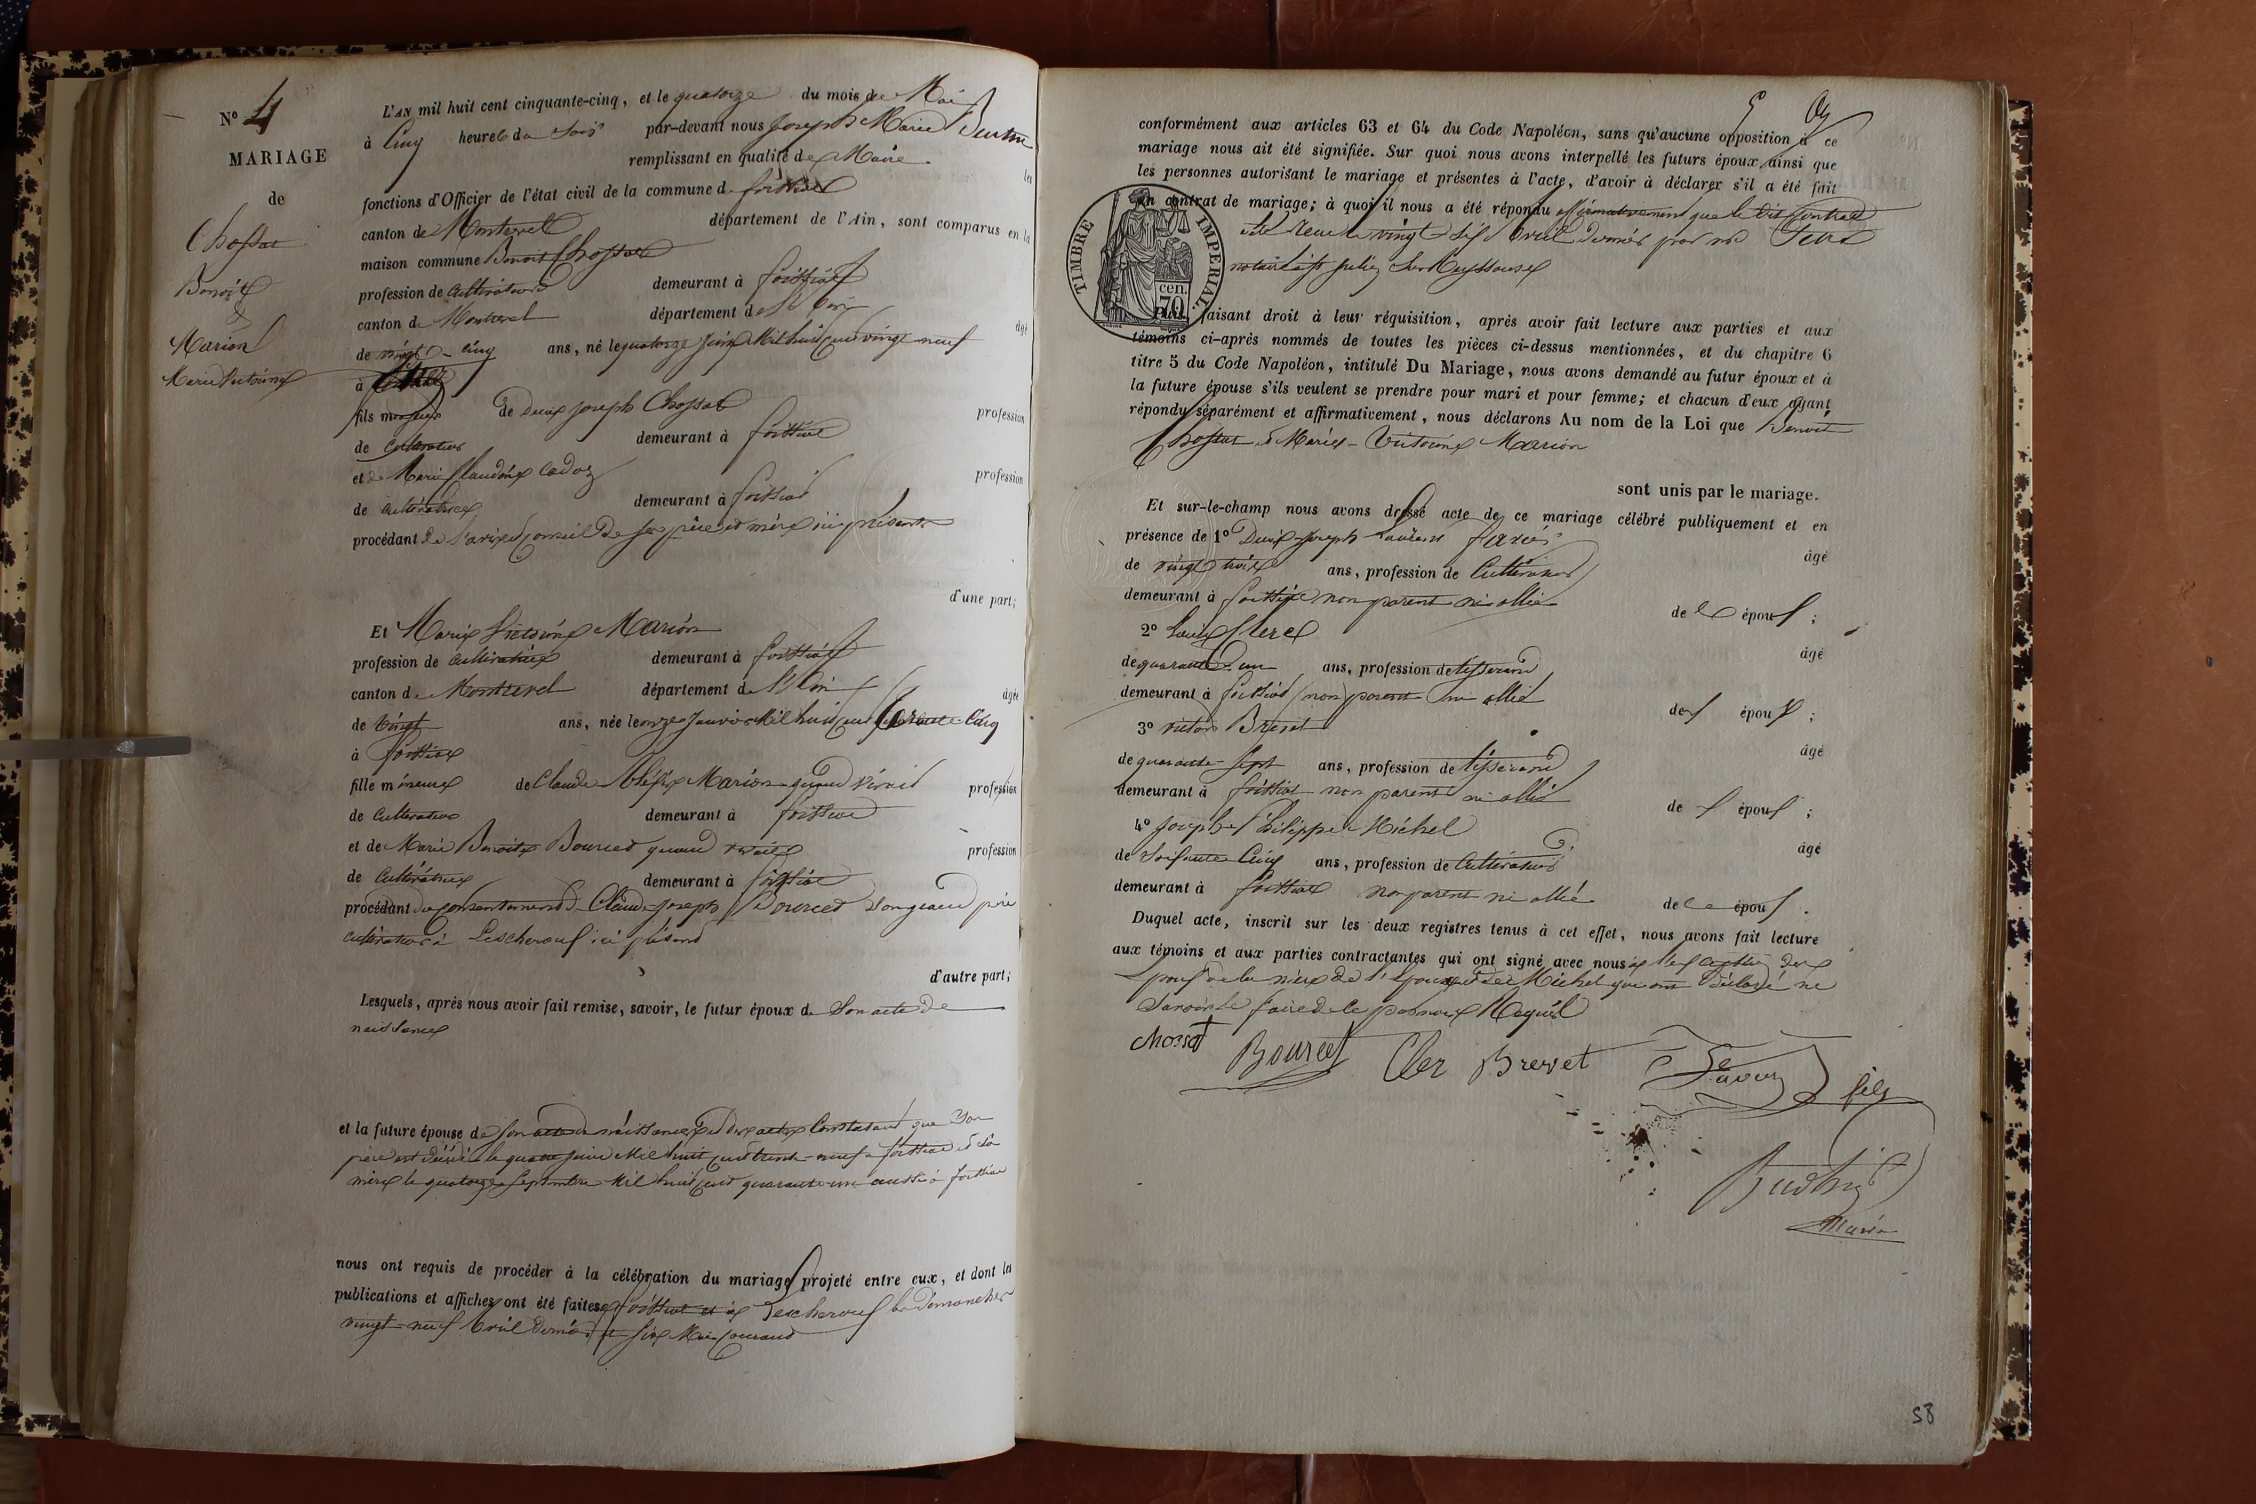 N° 4
MARIAGE
de
Chossat
Benoît
&
Marion
Marie Victorine
L'AN mil huit cent cinquante-cinq, et le quatorze du mois de Mai
à Cinq heures du Soir par-devant nous Joseph Marie
remplissant en qualité de Maire les
fonctions d'Officier de l'état civil de la commune de foissiat
canton de Montrevel département de l'Ain, sont comparus en la
maison commune Benoit Chossat
profession de Cultivateur demeurant à foissiat
canton de Montrevel département de l'Ain âgé
de vingt-cinq ans, né le quatorze Juin Mil huit cent vingt-neuf
à
fils majeur de Joseph Chossat profession
de Cultivateur demeurant à foissiat
et de Marie Claudine Cadoz profession
de Cultivatrice demeurant à foissiat
procédant de l'avis & Conseil de ses père et mère ici présents
d'une part;
Et Marie Victorine Marion
profession de Cultivatrice demeurant à foissiat
canton de Montrevel département de l'Ain âgée
de vingt ans, née le onze Janvier Mil huit cent trente-Cinq
à foissiat
fille mineure de Claude Marion quand vivait profession
de Cultivateur demeurant à foissiat
et de Marie Benoite Bourcet quand vivait profession
de Cultivatrice demeurant à foissiat
procédant du consentement de Claude-Joseph Bourcet son grand père
cultivateur à Lescheroux ici présent
d'autre part;
Lesquels, après nous avoir fait remise, savoir, le futur époux de Son acte de
naissance
et la future épouse de son acte de naissance & des actes Constatant que Son
père est décédé le quatre Juin Mil huit cent trente-neuf à foissiat et sa
mère le quatorze Septembre Mil huit cent quarante-un aussi à foissiat
nous ont requis de procéder à la célébration du mariage projeté entre eux, et dont les
publications et affiches ont été faites à foissiat et à Lescheroux les dimanches
vingt-neuf Avril dernier et six Mai courant
conformément aux articles 63 et 64 du Code Napoléon, sans qu'aucune opposition à ce
mariage nous ait été signifiée. Sur quoi nous avons interpellé les futurs époux ainsi que
les personnes autorisant le mariage et présentes à l'acte, d'avoir à déclarer s'il a été fait
un contrat de mariage; à quoi il nous a été répondu affirmativement que le dit Contrat
a été reçu le vingt-six Avril dernier par
notaire à St Julien sur Reyssouze
TIMBRE IMPÉRIAL
70 cen.
faisant droit à leur réquisition, après avoir fait lecture aux parties et aux
témoins ci-après nommés de toutes les pièces ci-dessus mentionnées, et du chapitre 6
titre 5 du Code Napoléon, intitulé Du Mariage, nous avons demandé au futur époux et à
la future épouse s'ils veulent se prendre pour mari et pour femme; et chacun d'eux ayant
répondu séparément et affirmativement, nous déclarons Au nom de la Loi que Benoit
Chossat & Marie-Victorine Marion
sont unis par le mariage.
Et sur-le-champ nous avons dressé acte de ce mariage célébré publiquement et en
présence de 1° Joseph âgé
de vingt trois ans, profession de Cultivateur
demeurant à foissiat non parent ni allié de époux;
2° Louis Clerc âgé
de quarante-un ans, profession de tisserand
demeurant à foissiat non parent ni allié des époux;
3° victor Brevet âgé
de quarante-sept ans, profession de tisserand
demeurant à foissiat non parent ni allié des époux;
4° Joseph Philippe Michel âgé
de Soixante Cinq ans, profession de Cultivateur
demeurant à foissiat non parent ni allié de époux.
Duquel acte, inscrit sur les deux registres tenus à cet effet, nous avons fait lecture
aux témoins et aux parties contractantes qui ont signé avec nous
époux & la mère de l'Epoux & de Michel qui ont déclaré ne
Savoir le faire de ce
chossat
Bourcet Cler Brevet
fils
Maire
58